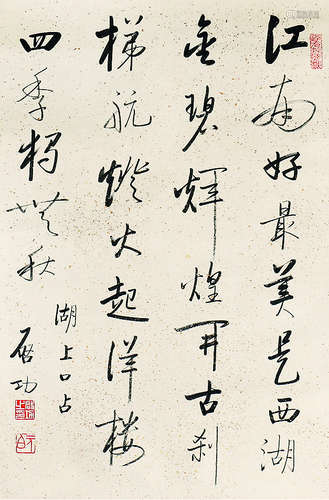 江南好最美是西湖
金碧辉煌开古刹
梯航灯火起洋楼
四季独无秋
湖上口占
启功